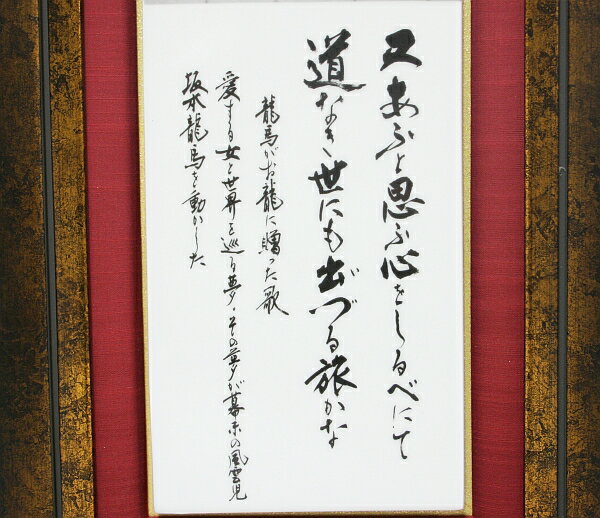 又あふと思ふ心をしるべにて
道なき世にも出づる旅かな
龍馬がお龍に贈った歌
愛する女と世界を巡る夢・その夢が幕末の風雲児
坂本龍馬を動かした